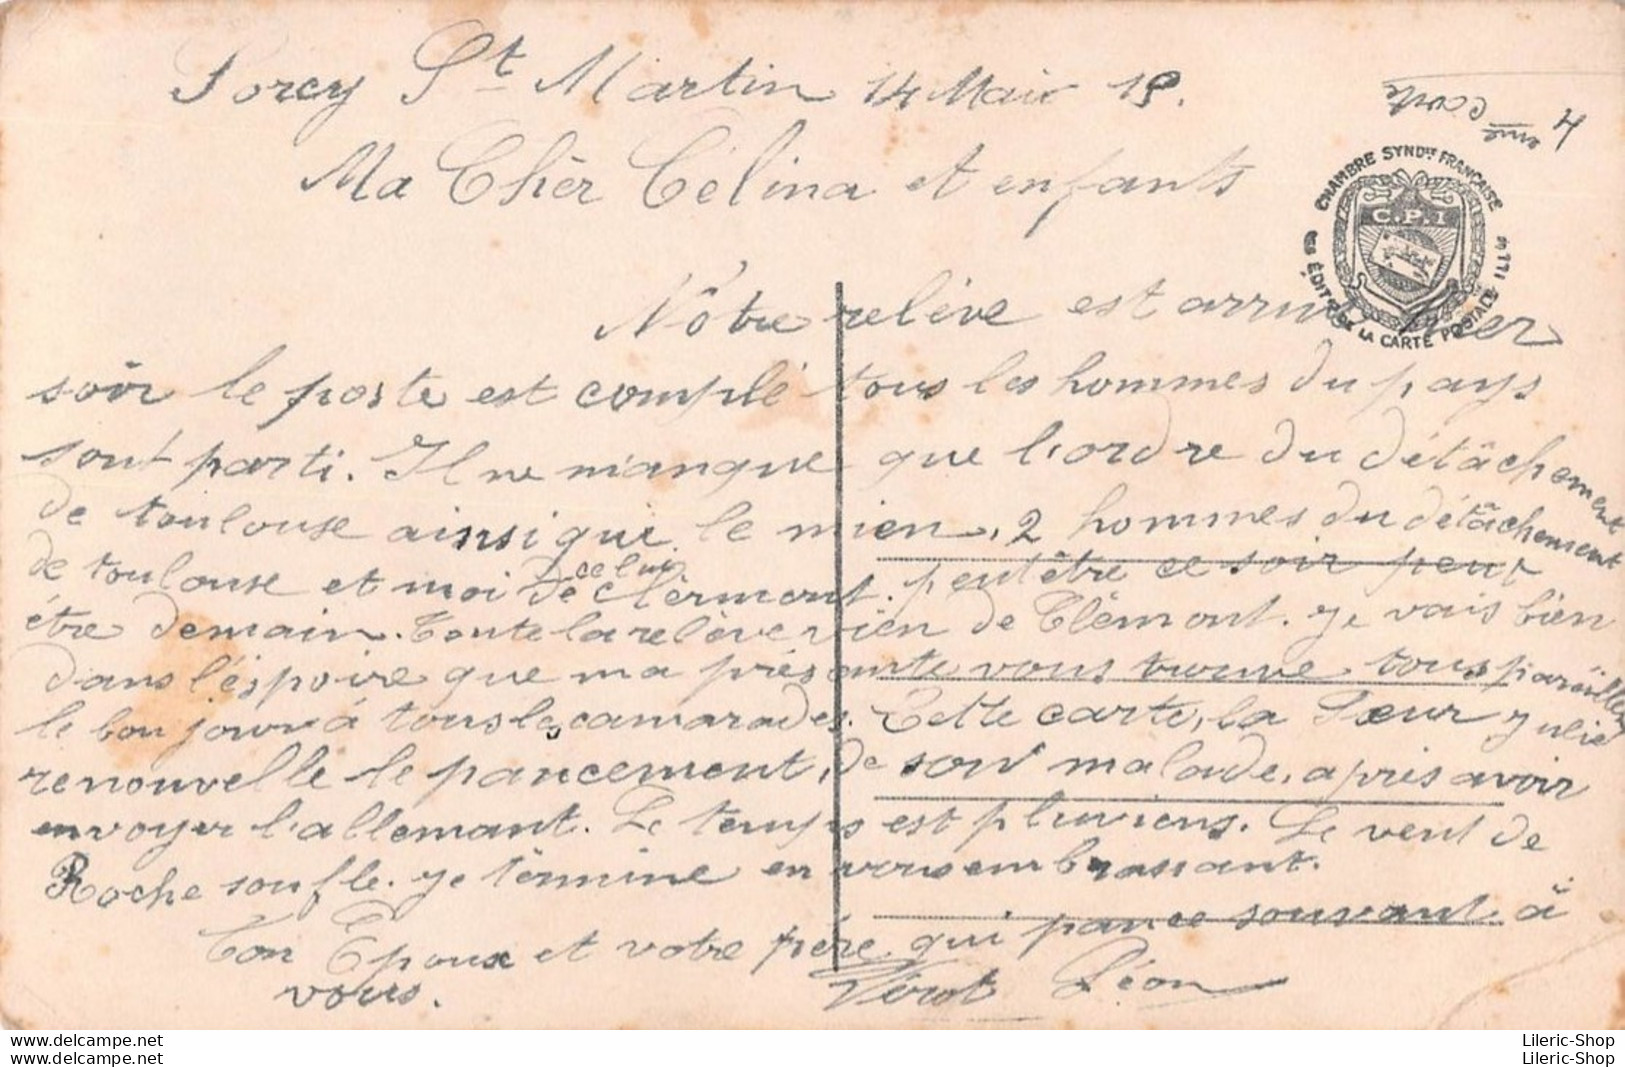 Sorcy St Martin 14 Mai 19.
4 eme carte
CHAMBRE SYNDle FRANÇAISE
C.P.I
DES ÉDITrs DE LA CARTE POSTALE ILLée
Ma Chèr Célina et enfants
Nôtre relève est arrivé hier
soir le poste est complé tous les hommes du pays
sont parti. Il ne manque que l'ordre du détâchement
de toulouse ainsi que le mien, 2 hommes du détâchement
de toulouse et moi de celui Clèrmont. peut être ce soir peut
être demain. Toute la relève vien de Clêmont. Je vais bien
dans l'éspoire que ma présente vous trouve tous pareillem
le bonjour à tous les camarades. Cette carte, la Sœur Julie
renouvelle le pancement, de son malade, après avoir
envoyer l'allemant. Le temps est pluviens. Le vent de
Roche soufle. Je tèrmine en vous embrassant.
Ton Epoux et votre père qui pance souvant à
vous. Virot Léon
Lileric-Shop
Lileric-Shop
Lileric-Shop
Lileric-Shop